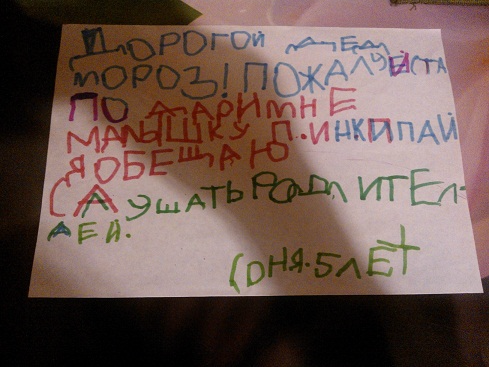 ДОРОГОЙ ДЕД
МОРОЗ! ПОЖАЛУЕЙСТА
ПО ДАРИ МНЕ
МАЛЫШКУ П.ИНКИПАЙ
Я ОБЕЩАЮ
СЛУШАТЬ РОДИТЕЛ-
ЛЕЙ.
СОНЯ. 5 ЛЕТ